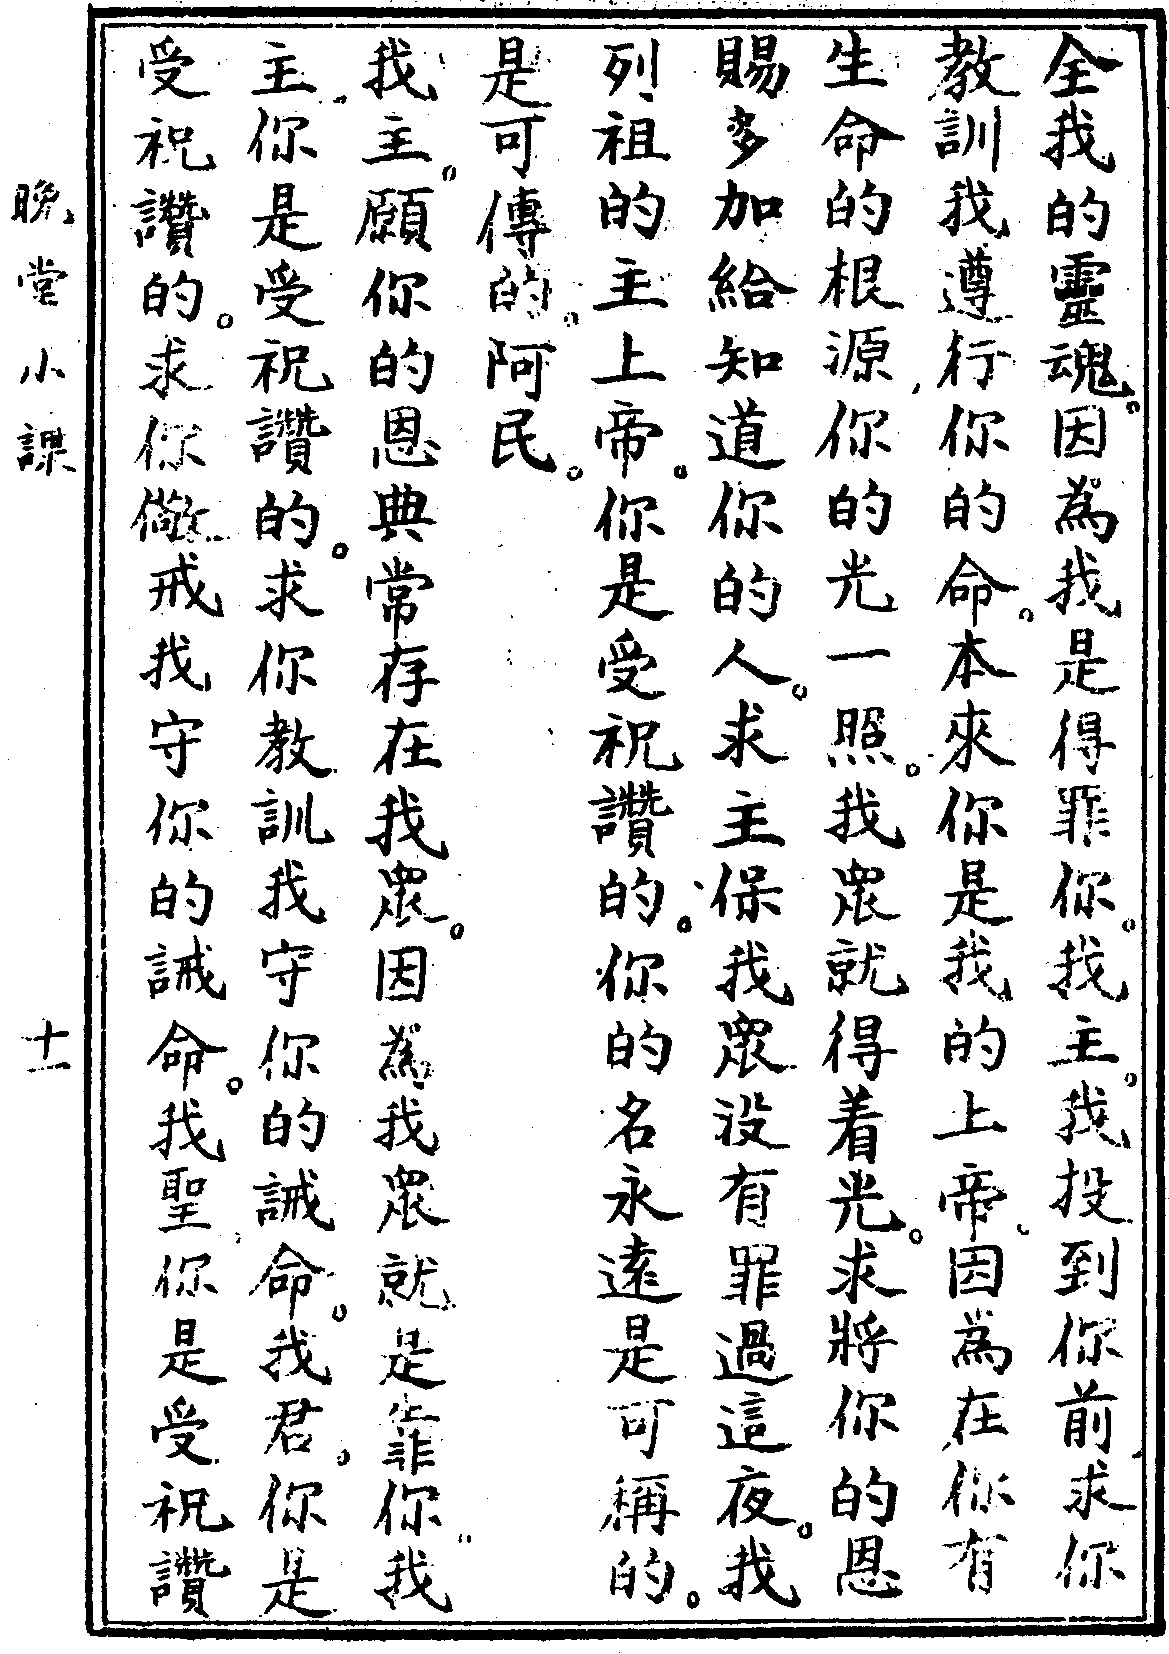 全我的靈魂。因為我是得罪你。我主。我投到你前求你
教訓我遵行你的命。本來你是我的上帝、因為在你有
生命的根源、你的光一照。我眾就得着光。求將你的恩
賜多加給知道你的人。求主保我眾没有罪過這夜。我
列祖的主上帝。你是受祝讚的。你的名永遠是可稱的。
是可傳的。阿民。
我主。願你的恩典常存在我眾。因為我眾就是靠你、我
主、你是受祝讚的。求你教訓我守你的誡命。我君。你是
受祝讚的。求你儆戒我守你的誡命。我聖、你是受祝讚
晚堂小課
十一